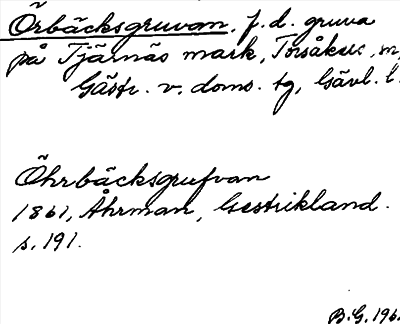 Örbäcksgruvan, f.d. gruva
på Tjärnäs mark, Torsåkers, sn,
Gästr. v. doms. tg, Gävl. l.
Öhrbäcksgrufvan
1861, Åhrman, Gestrikland.
s. 191.
B.G. 196